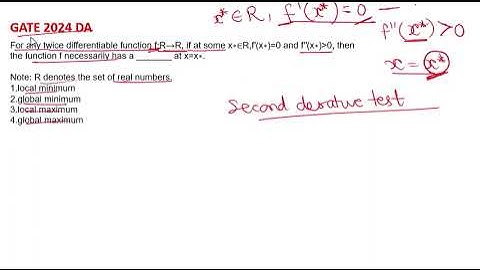 x* ∈ R, f'(x*) = 0 —
f''(x*) > 0
x = x*
GATE 2024 DA
For any twice differentiable function f:R→R, if at some x∗∈R,f'(x∗)=0 and f''(x∗)>0, then
the function f necessarily has a ________ at x=x∗.
Note: R denotes the set of real numbers.
1.local minimum
2.global minimum
3.local maximum
4.global maximum
Second derative test